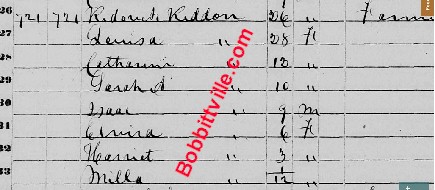 26 721 721 Kiddon 26 " Farmin
27 Louisa " 28 F
28 Catherine " 12 "
29 Sarah A " 10 "
30 Isaac " 9 m
31 Elvira " 6 F
32 Harriet " 3 "
33 Milla " 1/12 "
Bobbittville.com